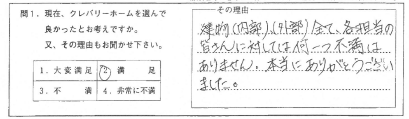 問1. 現在、クレバリーホームを選んで
良かったとお考えですか。
又、その理由もお聞かせ下さい。
1. 大変満足 2. 満 足
3. 不 満 4. 非常に不満
その理由
建物(内部)、(外部)全て、各担当の
皆さんに対しては何一つ不満は
ありません。本当にありがとうござい
ました。